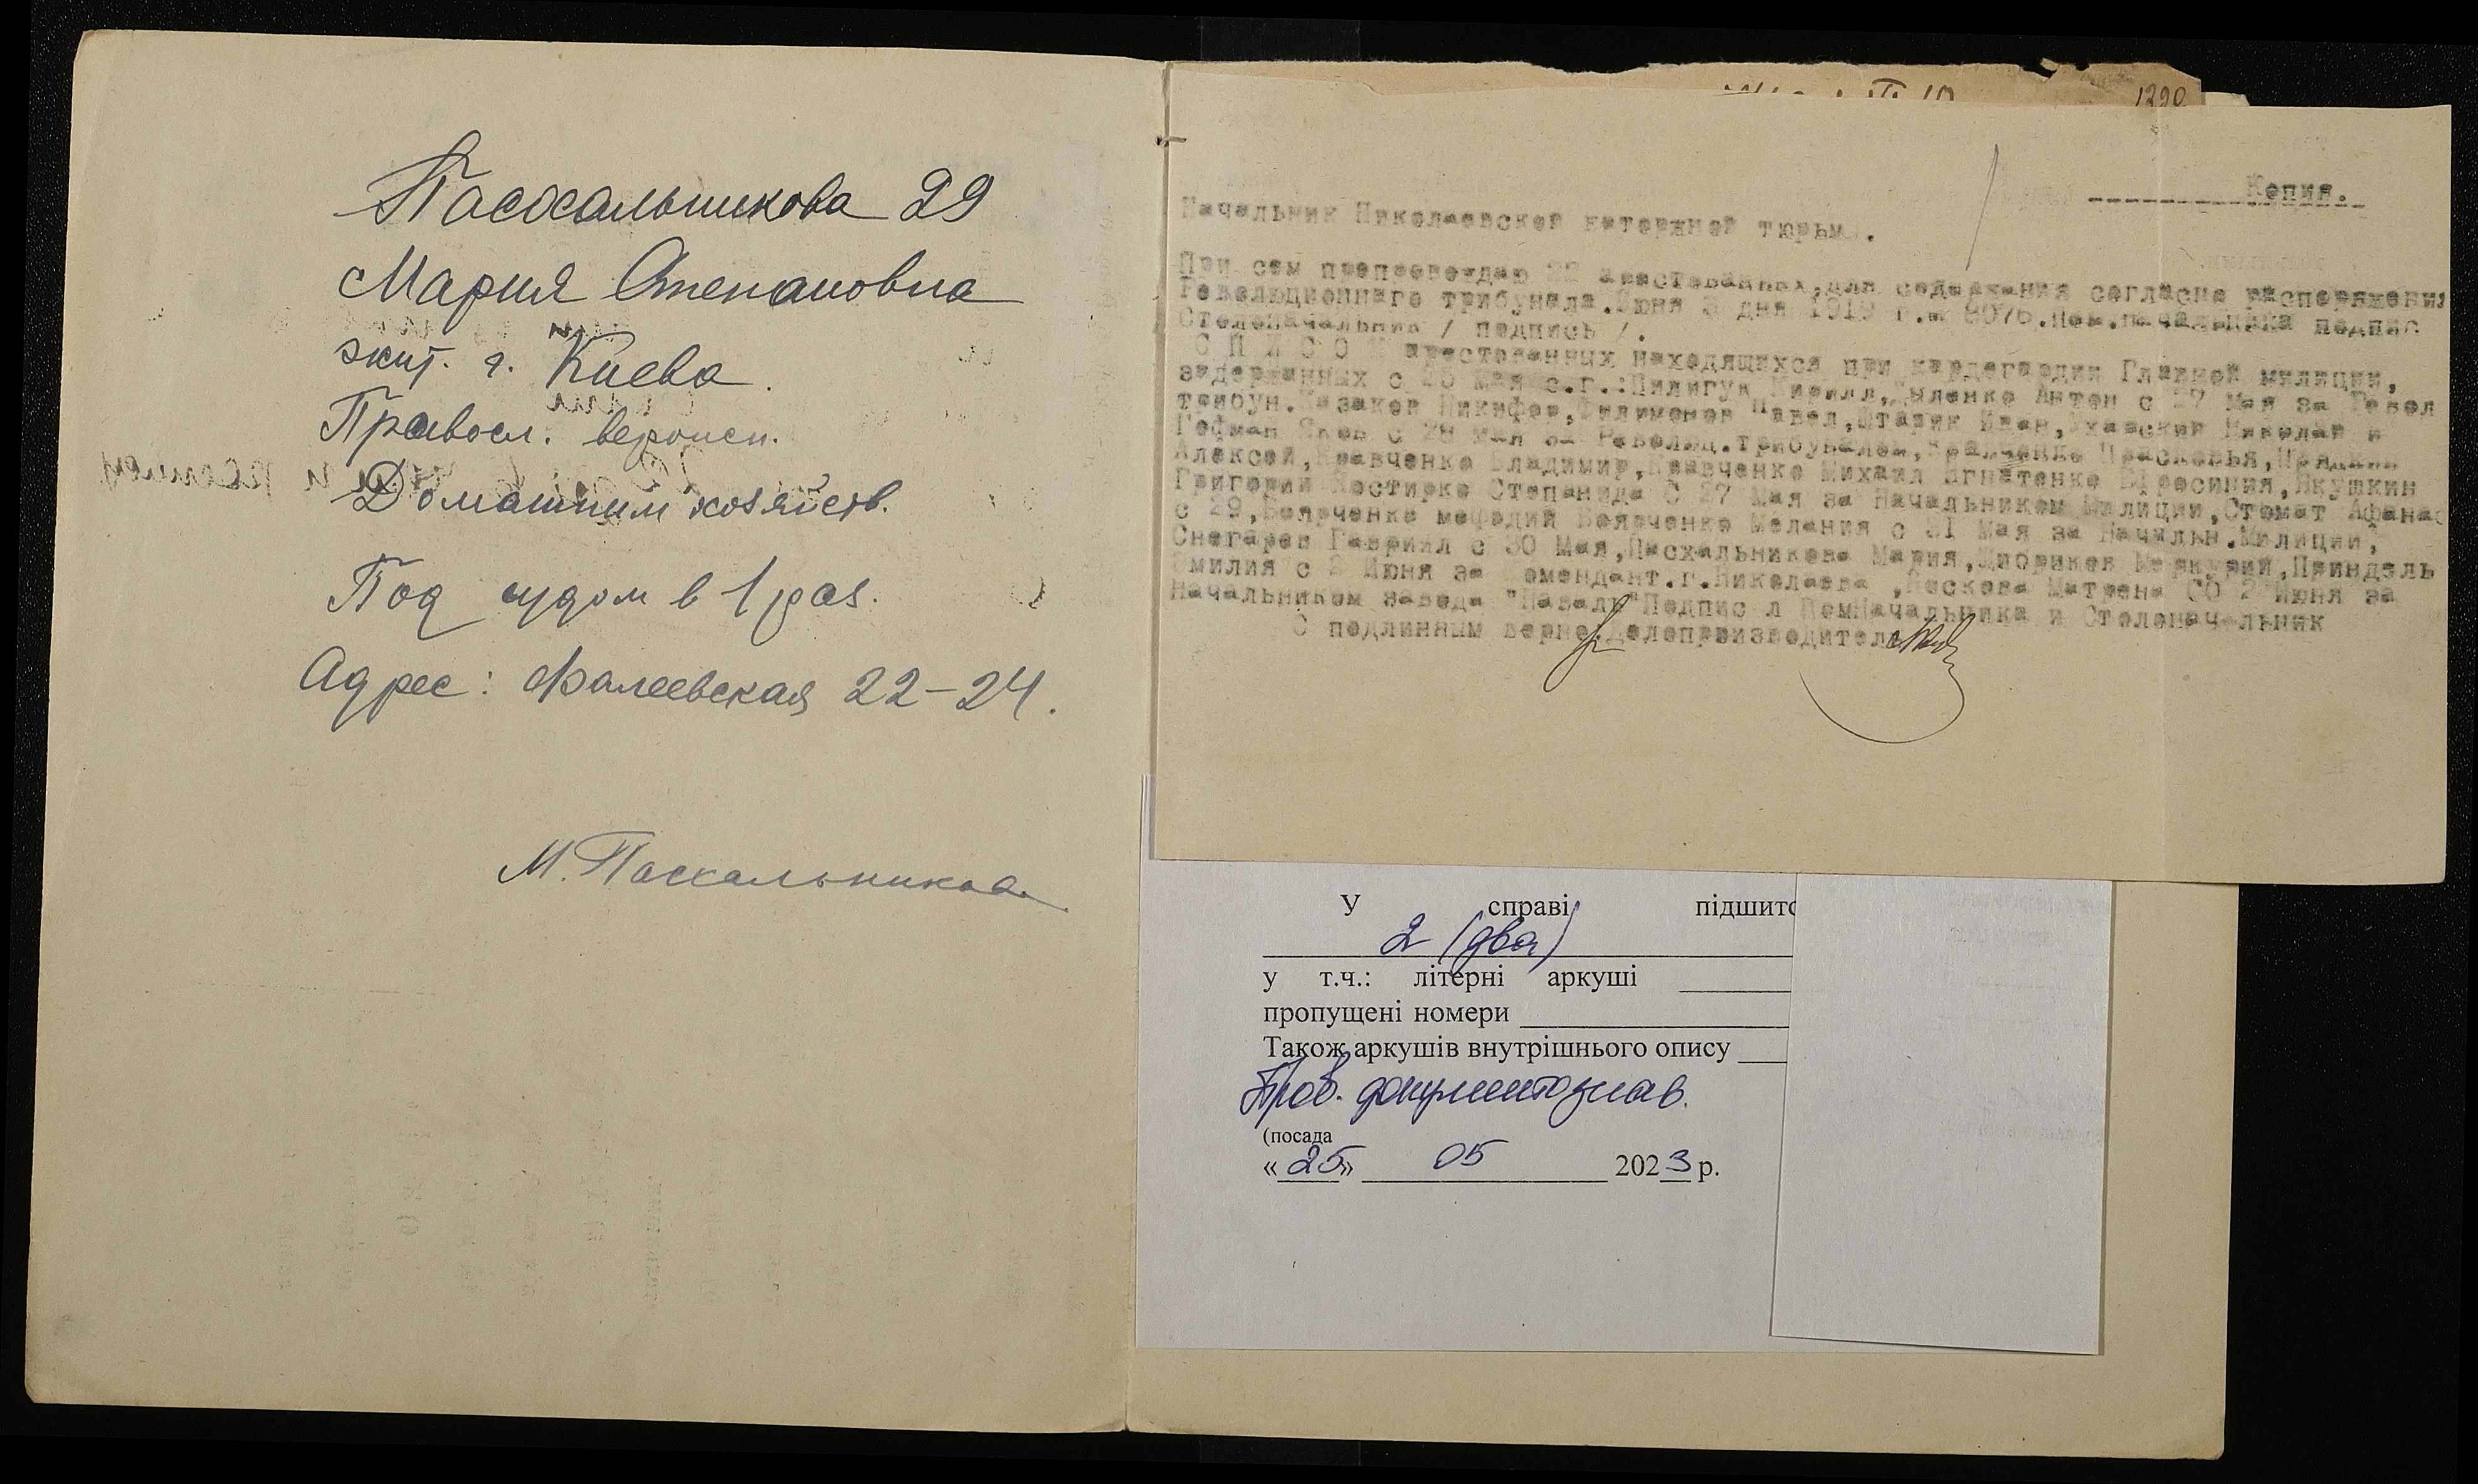 Пасхальникова 29
Мария Степановна
жит. г. Киева
Правосл. вероисп.
Домашним хозяйств.
Под судом в 1 раз.
Адрес: Фалеевская 22-24.
М. Пасхальникова
1390
Кепия.
Начальник Николаевской катержней тюрьм .
При сем препровождаю 22 арестованных, для содержания согласне распоряжения
Революционнаго трибунала. Июня 3 дня 1919 г. № 8076. Пом. начальника подпис
Столоначальник / подпись /.
СПИСОК арестованных находящихся при кардегардии Главной милиции,
задержанных с 26 мая с.г.: Пилигук Кирилл, Цыленко Антон с 27 Мая за Револ
трибун. Казаков Никифор, Филимонов Павел, Штарик Иван, Николай и
Гофман Яков с 28 мая за Революц. трибуналом, Прасковья,
Алексей, Кравченко Владимир, Кравченко Михаил Игнатенко Ефросиния, Якушкин
Григорий Костирко Степанида С 27 Мая за Начальником Милиции, Стомат Афанас
с 29, Боярченко мефодий Боярченко Мелания с 31 Мая за Начальн. Милиции,
Снегарев Гавриил с 30 Мая, Пасхальникова Мария, Жибриков Меркурий, Приндель
Эмилия с 2 Июня за Комендант. г. Николаева , Пескова Матрена СО 2 Июня за
Начальником завода "Наваль" Подпис л ПомНачальника и Столоначальник
С подлинным верно: Делопроизводитель
У справі підшито
2 (два)
у т.ч.: літерні аркуші
пропущені номери
Також аркушів внутрішнього опису
Пров. документознав.
(посада
« 25» 05 2023 р.